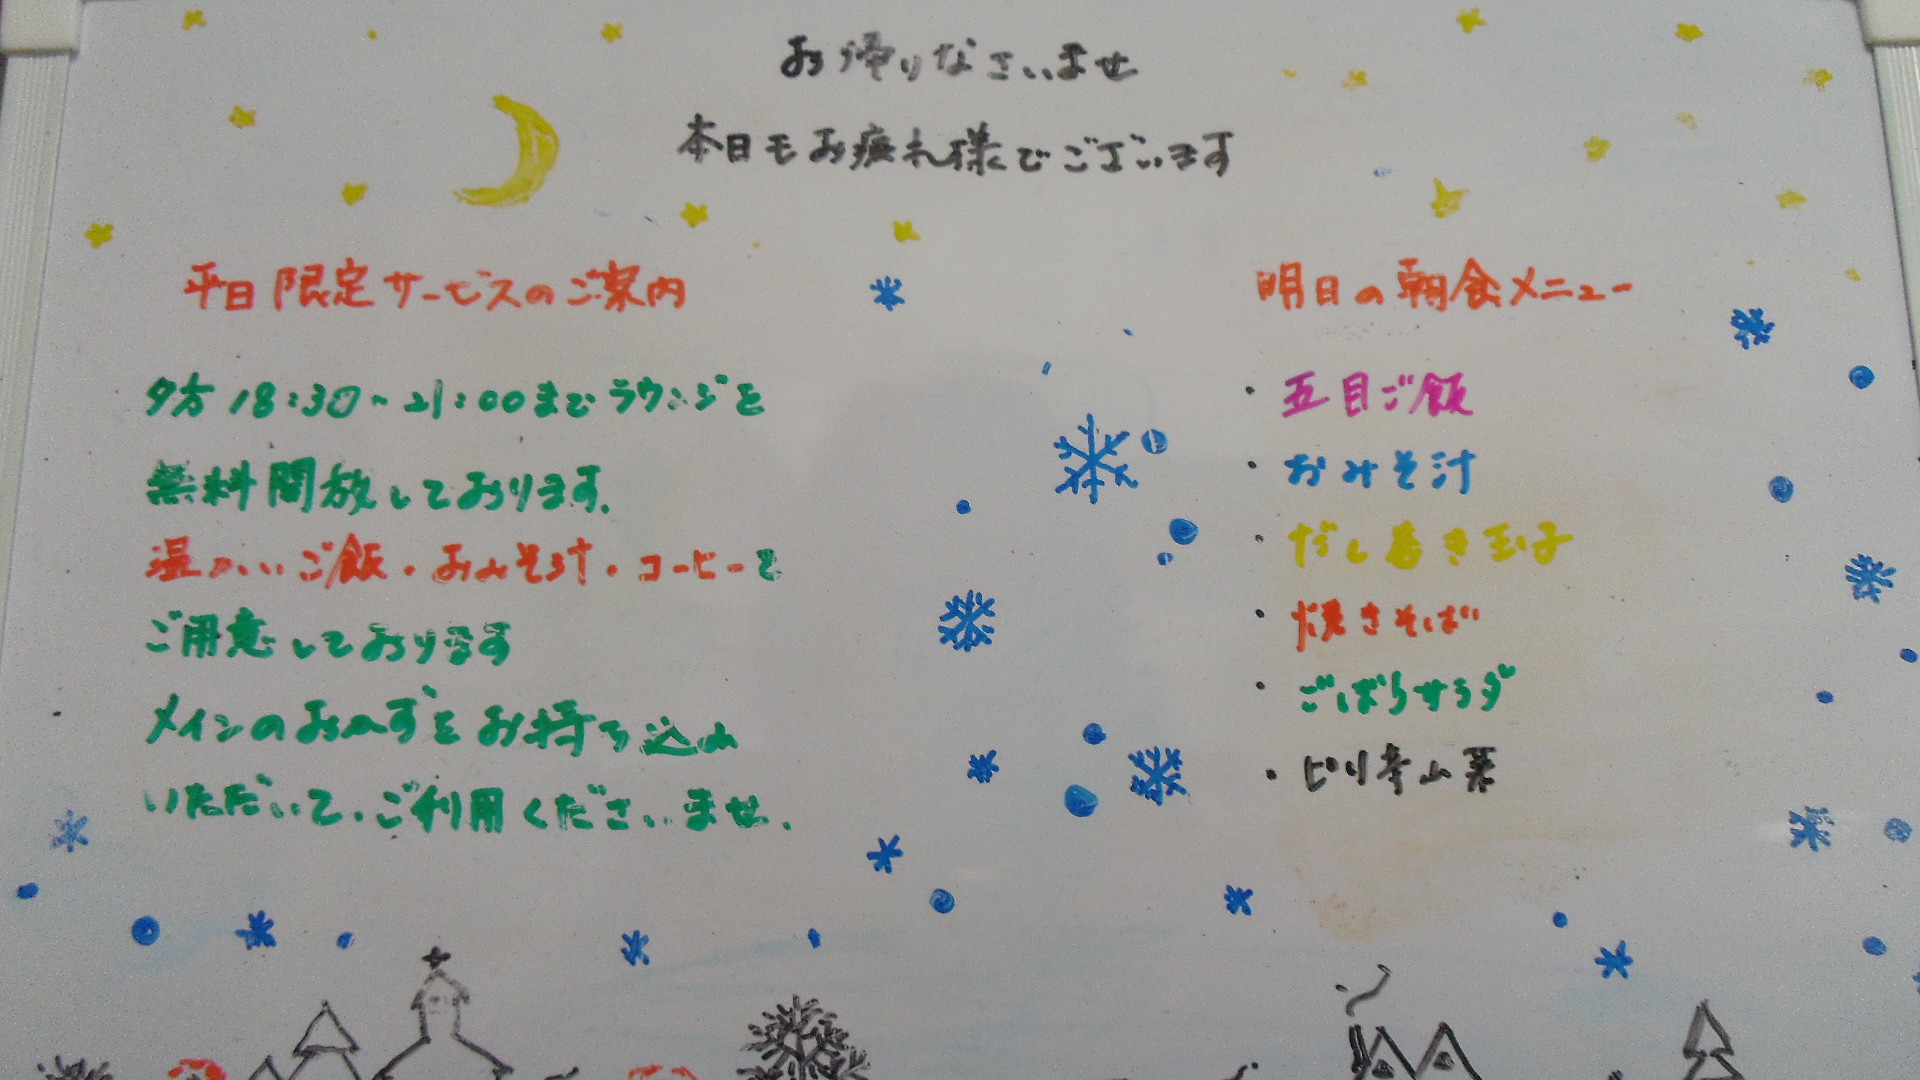 お帰りなさいませ
本日もお疲れ様でございます
平日限定サービスのご案内
夕方18:30~21:00までラウンジを
無料開放しております。
温かいご飯・おみそ汁・コーヒーを
ご用意しております
メインのおかずをお持ち込み
いただいて、ご利用くださいませ。
明日の朝食メニュー
・五目ご飯
・おみそ汁
・だし巻き玉子
・焼きそば
・ごぼうサラダ
・ピリ辛山菜